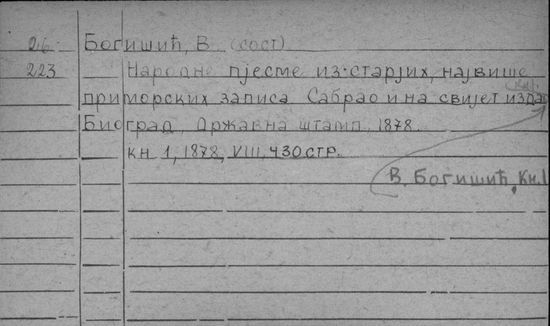 26. Богишић, В. (сост)
223 Народне пјесме из старјих, највише
приморских записа. Сабрао и на свијет издао
Биоград, Државна штамп, 1878.
кн. 1, 1878, VIII, 430 стр.
В. Богишић, Кн. 1